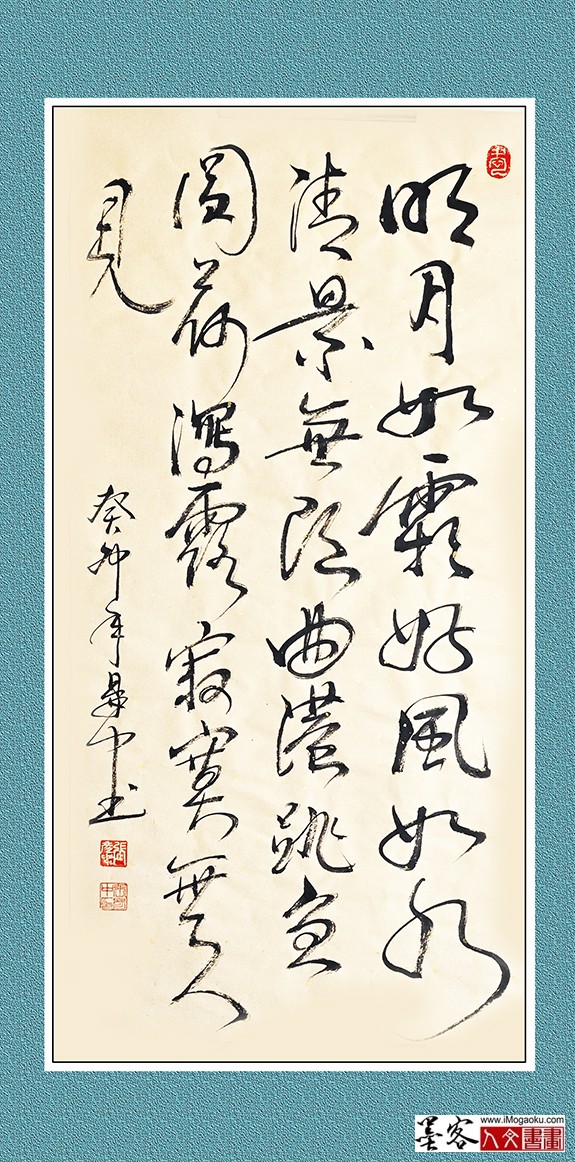 明月如霜好風如水
清景無限曲港跳魚
圓荷瀉露寂寞無人
見
癸卯年中书
www.iMogaoku.com
墨客人文書畫